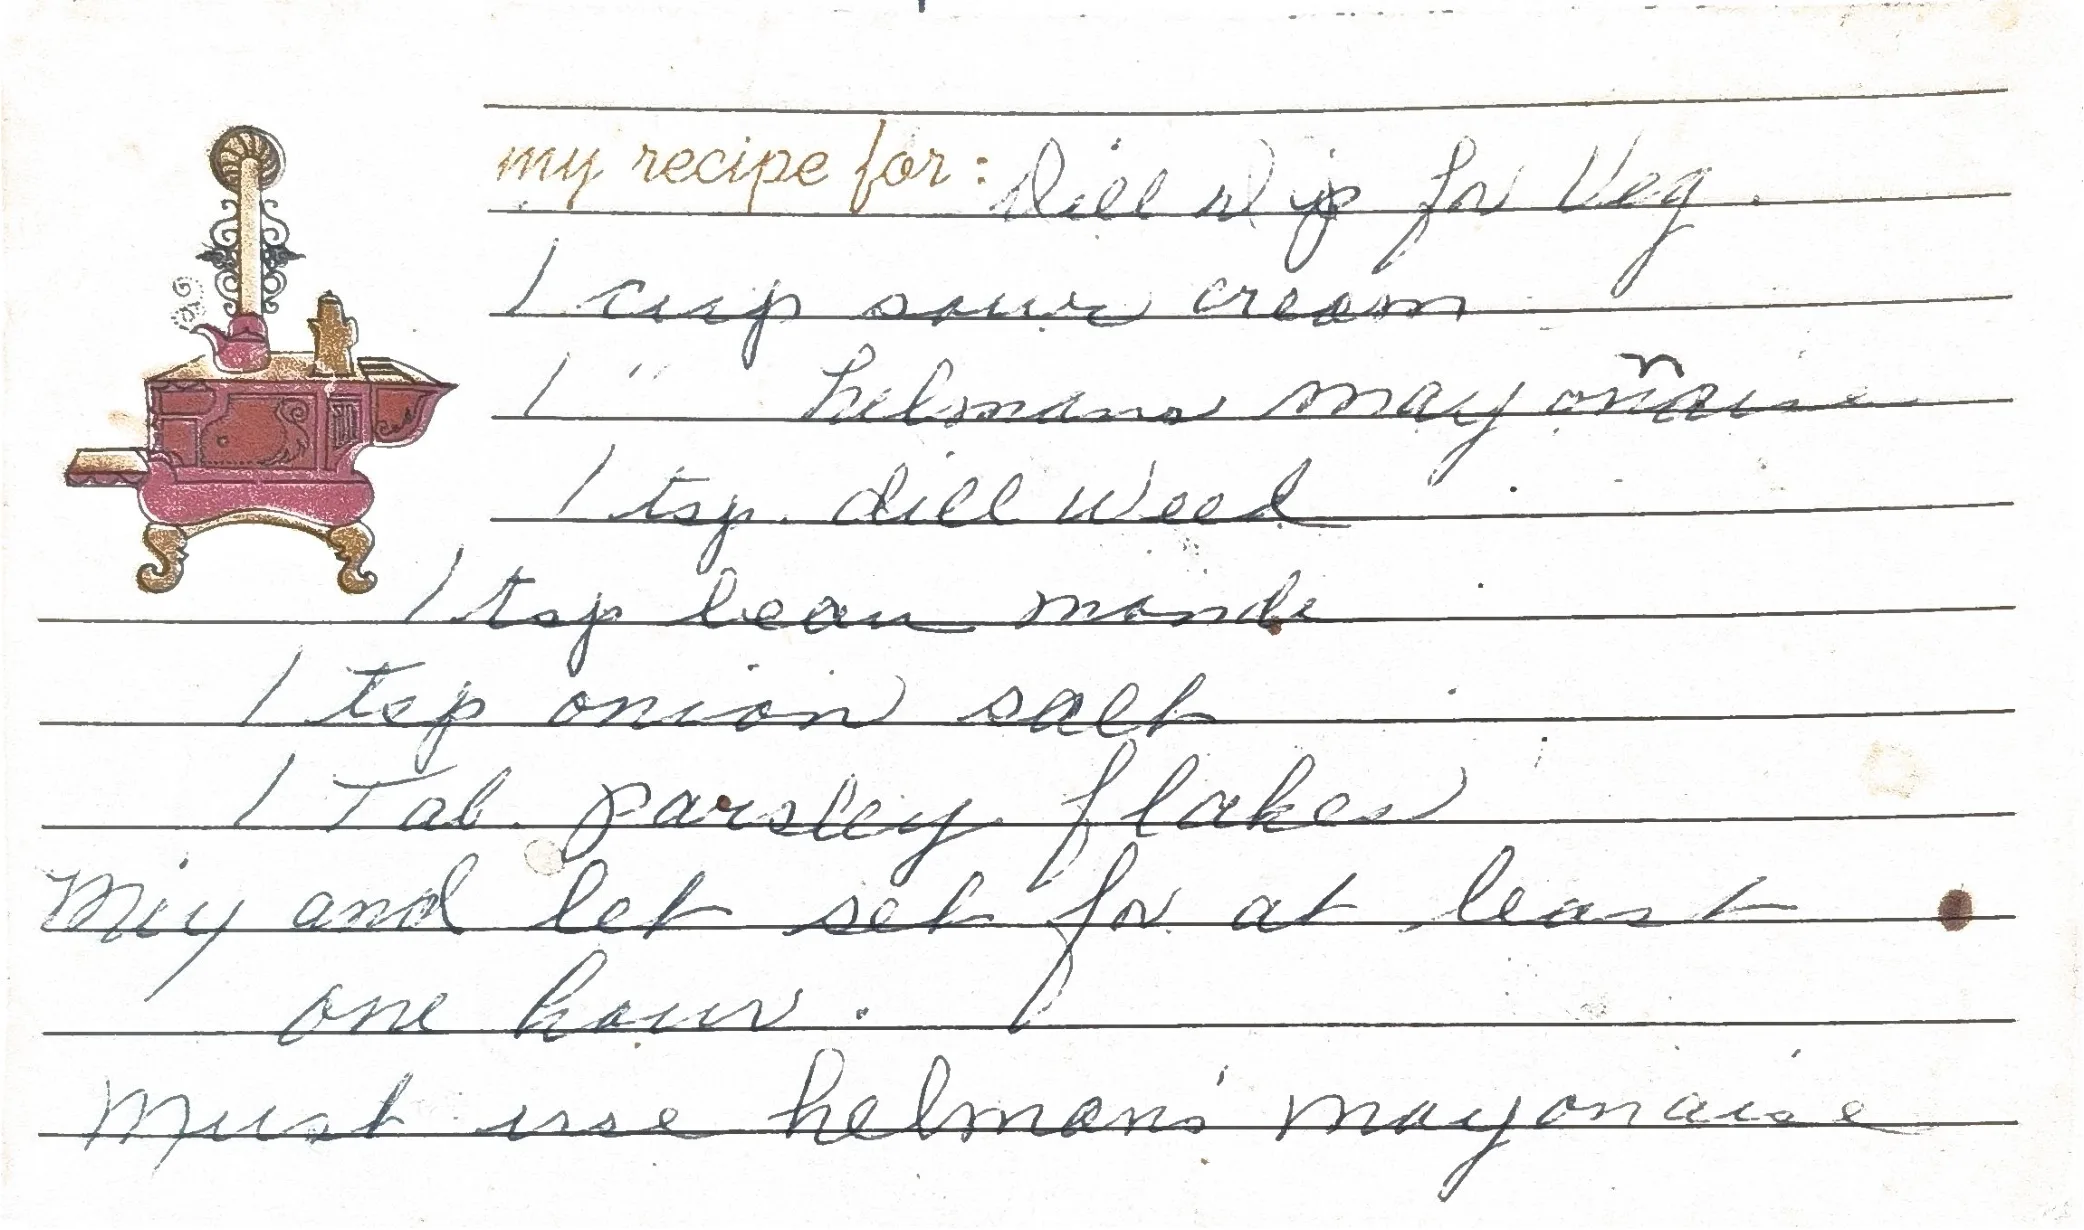 my recipe for: Dill Dip for Veg.
1 cup sour cream
1 " helmans mayonnaise
1 tsp. dill weed
1 tsp beau monde
1 tsp onion salt
1 Tab. parsley flakes
Mix and let set for at least
one hour.
Must use helman's mayonaise